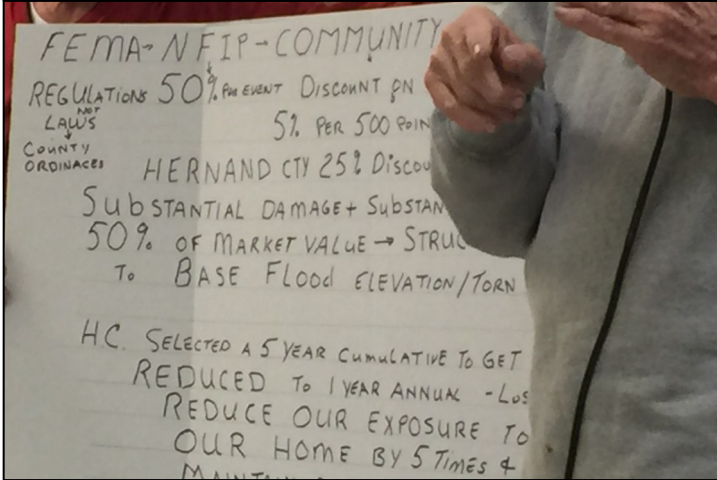 FEMA→NFIP-COMMUNITY
REGULATIONS 50% PER EVENT DISCOUNT ON
NOT
LAWS
5% PER 500 POIN
COUNTY
ORDINACES
HERNAND CTY 25% DISCOU
SUBSTANTIAL DAMAGE + SUBSTAN
50% OF MARKET VALUE → STRUC
TO BASE FLOOD ELEVATION/TORN
H.C. SELECTED A 5 YEAR CUMULATIVE TO GET
REDUCED TO 1 YEAR ANNUAL - LOS
REDUCE OUR EXPOSURE TO
OUR HOME BY 5 TIMES &